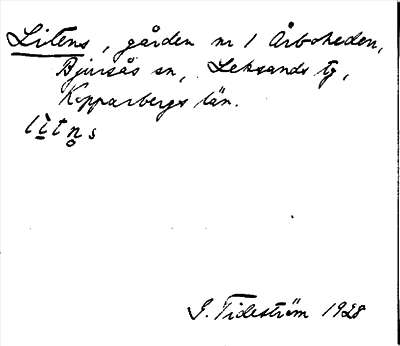 Litens, gården nr 1 Årboheden,
Bjursås sn, Leksands tg,
Kopparbergs län.
lìtn̥s
G. Tideström 1928